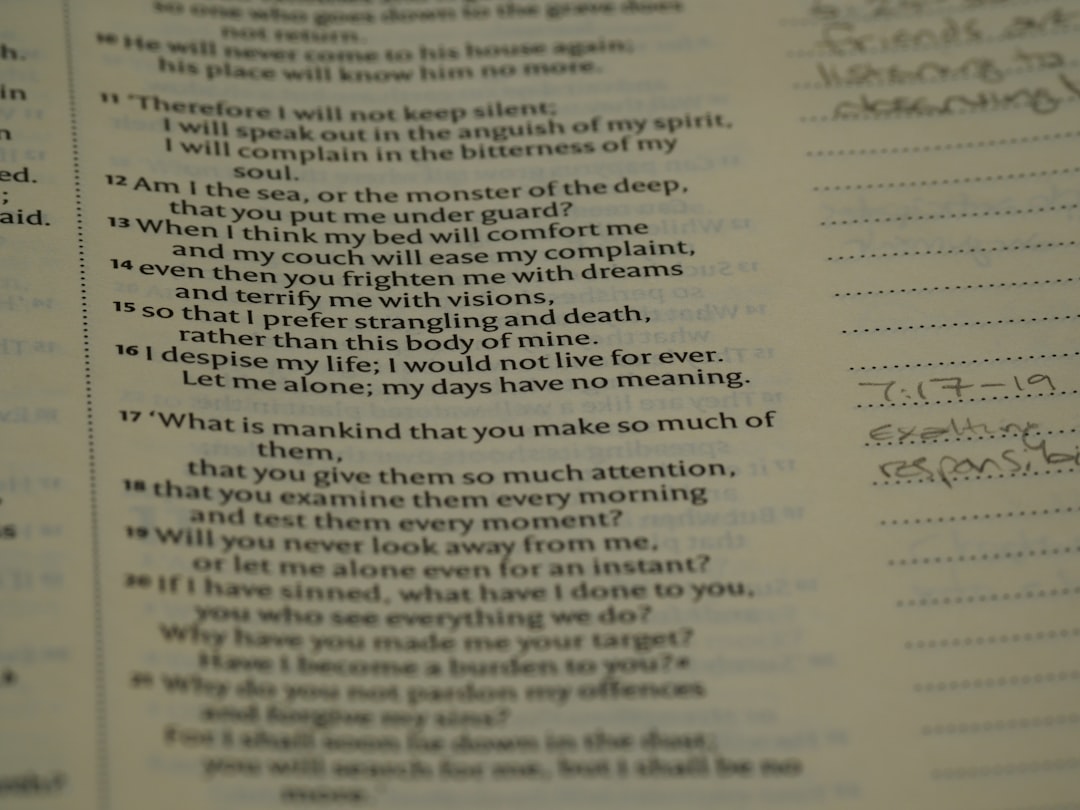 so one who goes down to the grave does
not return.
10 He will never come to his house again;
his place will know him no more.
11 ‘Therefore I will not keep silent;
I will speak out in the anguish of my spirit,
I will complain in the bitterness of my
soul.
12 Am I the sea, or the monster of the deep,
that you put me under guard?
13 When I think my bed will comfort me
and my couch will ease my complaint,
14 even then you frighten me with dreams
and terrify me with visions,
15 so that I prefer strangling and death,
rather than this body of mine.
16 I despise my life; I would not live for ever.
Let me alone; my days have no meaning.
17 ‘What is mankind that you make so much of
them,
that you give them so much attention,
18 that you examine them every morning
and test them every moment?
19 Will you never look away from me,
or let me alone even for an instant?
20 If I have sinned, what have I done to you,
you who see everything we do?
Why have you made me your target?
Have I become a burden to you?
21 Why do you not pardon my offences
and forgive my sins?
For I shall soon lie down in the dust;
you will search for me, but I shall be no
more.’
h.
in
n
ed.
;
aid.
friends
listening to
7:17-19
exalting